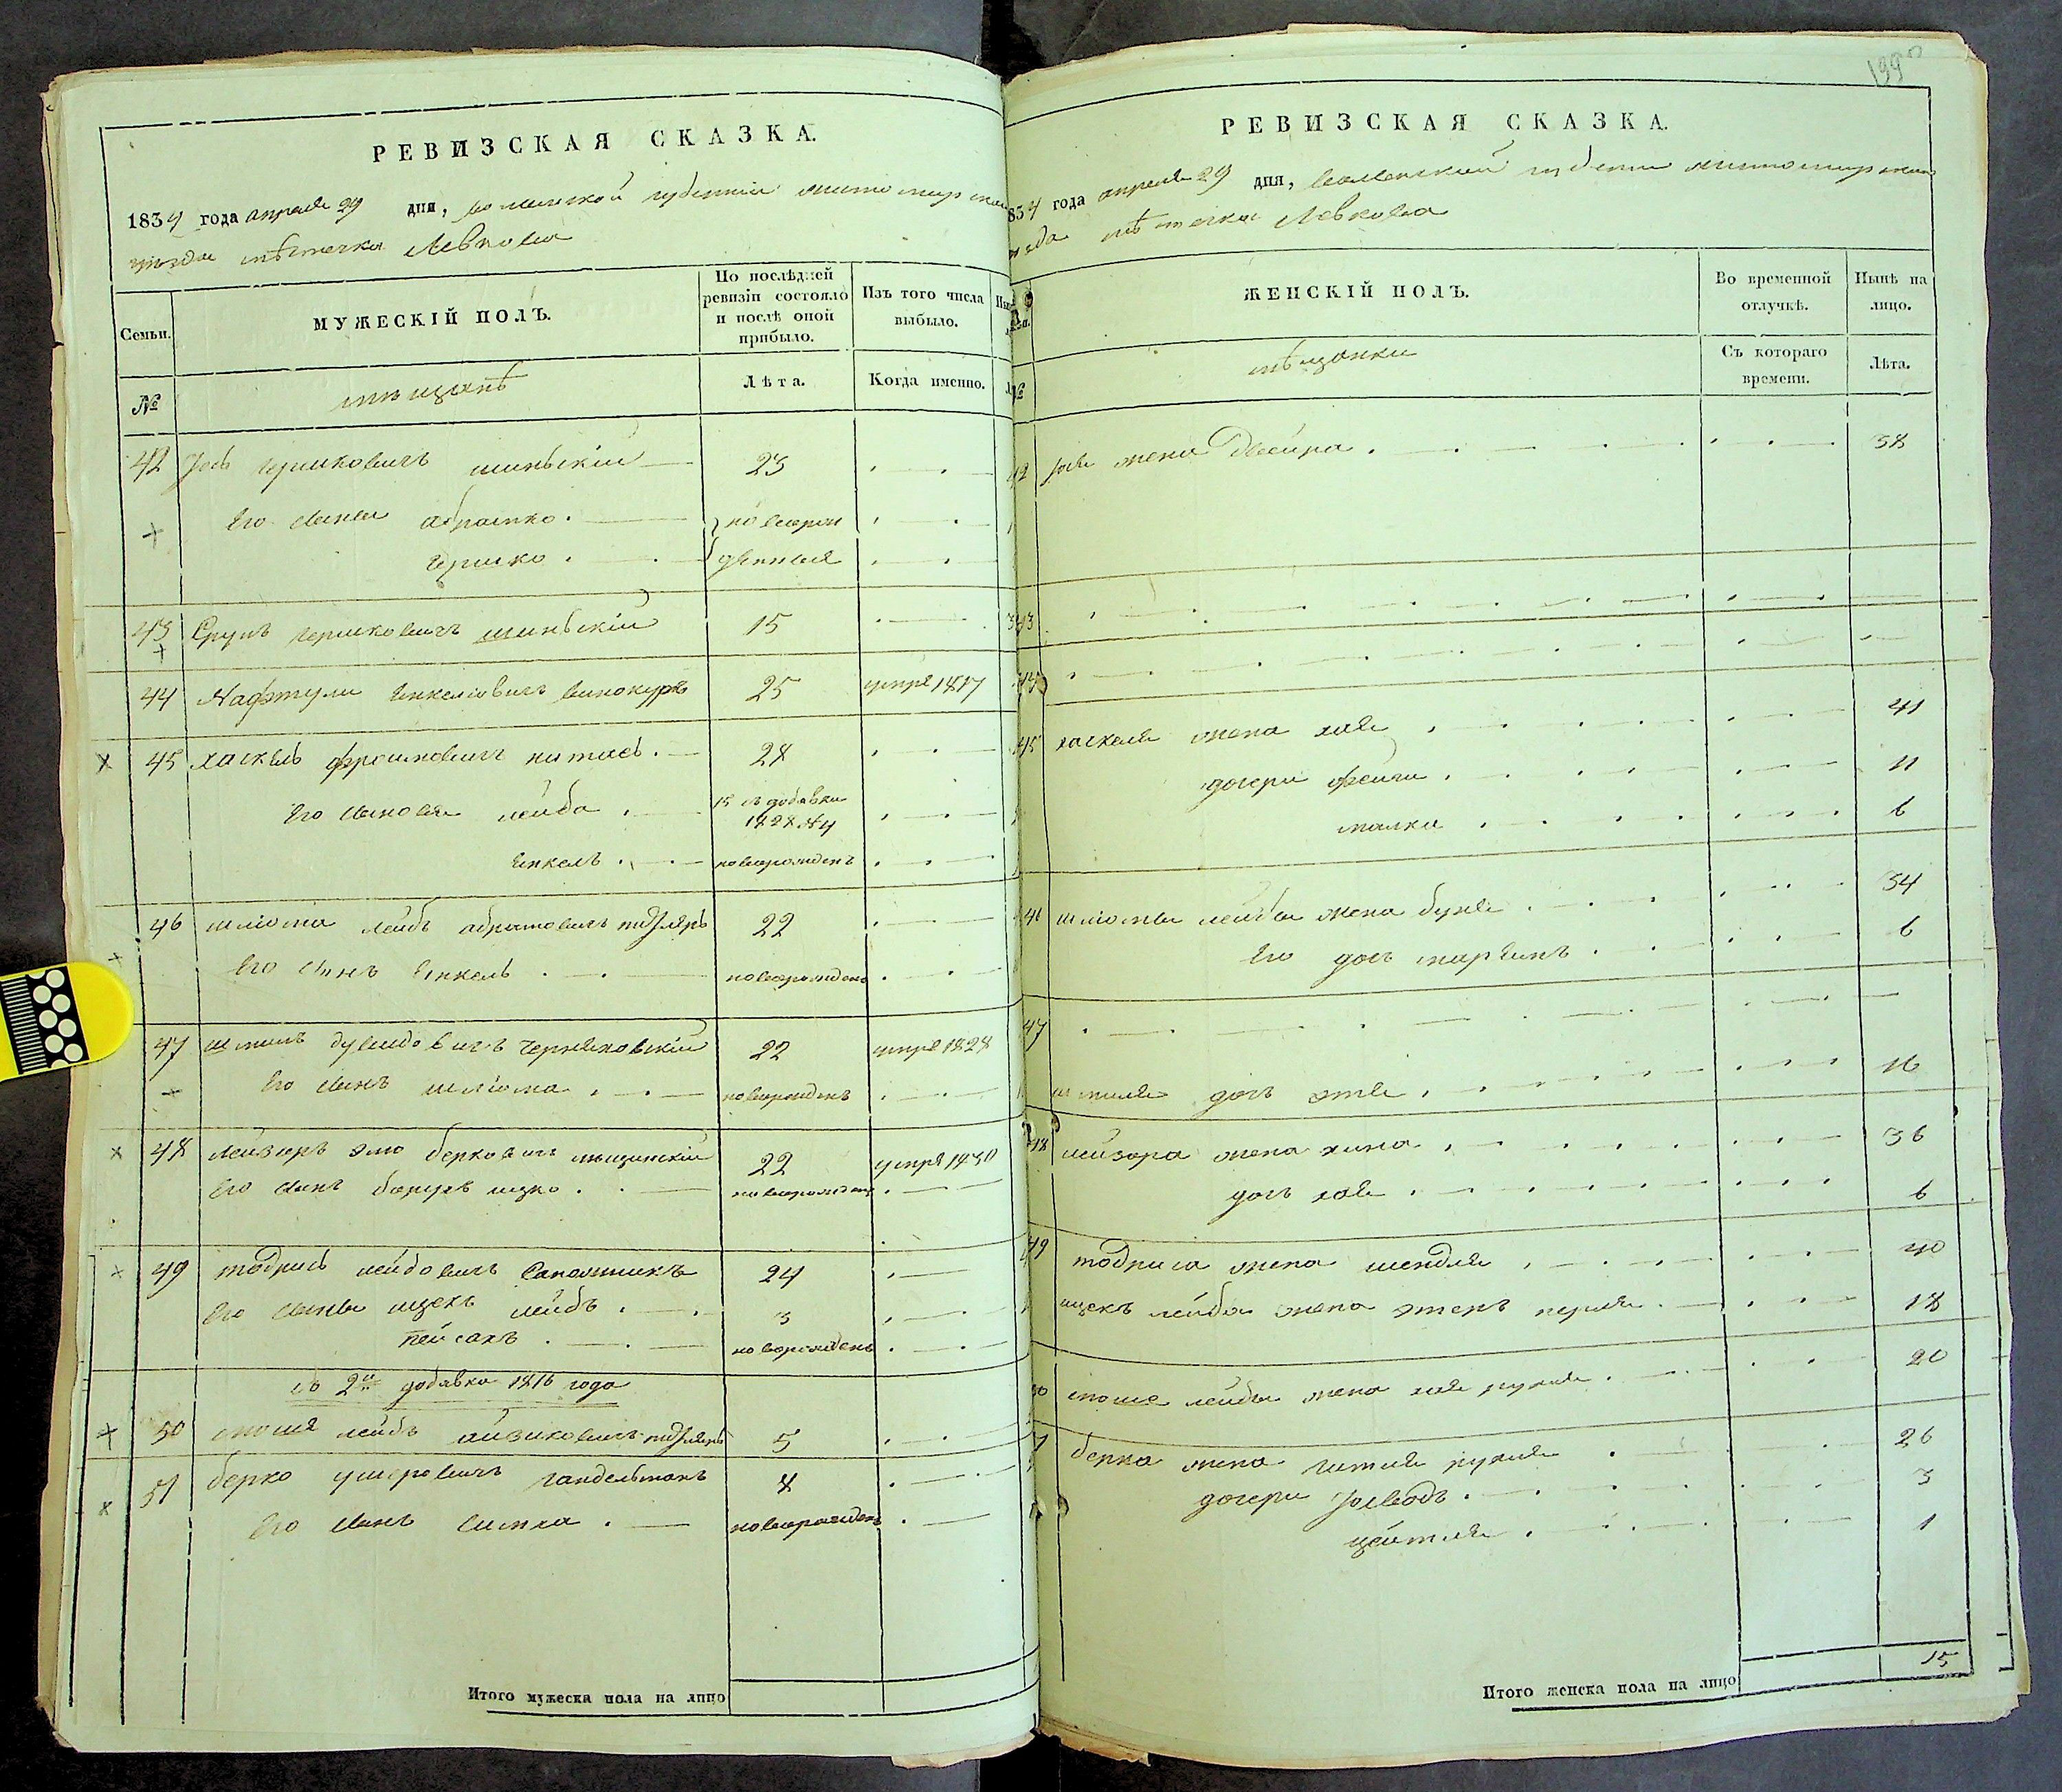 РЕВИЗСКАЯ СКАЗКА.
1834 года апреля 29 дня, волынской губернии житомирскаго
уезда мѣстечка Левкова
Семьи.
МУЖЕСКІЙ ПОЛЪ.
По послѣдней ревизіи состояло и послѣ оной прибыло.
Изъ того числа выбыло.
№
мещанѣ
Лѣта.
Когда именно.
42 Іось гершковичъ шинскій 23
Его сыны абрашко. новорож
гершко. денныя
43 Срулъ гершковичъ шинскій 15
44 Нафтули Енкелиовичъ винокуръ 25 умре 1817
45 хаскель фроимовичъ 28
Его сыновя лейба 15 съ добавки
1828 №4
Енкель новорожденъ
46 шліома лейбъ абрамовичъ 22
Его сынъ Енкель новорожденъ
47 шмиль дувидовичъ Черняховскій 22 умре 1828
Его сынъ шліома новорожденъ
48 Лейзоръ элио берковичъ 22 умре 1830
Его сынъ ицко новорожденъ
49 тодрись лейбовичъ Сапожникъ 24
Его сыны ицекъ лейбъ 3
пейсахъ новорожденъ
по 2й добавки 1816 года
50 моше лейбъ айзиковичъ 5
51 берко ушеровичъ гандельманъ 8
Его сынъ новорожденъ
Итого мужеска пола на лицо
1390
РЕВИЗСКАЯ СКАЗКА.
834 года апреля 29 дня, волынской губернии житомирскаго
уезда мѣстечка Левкова
ЖЕНСКІЙ ПОЛЪ.
Во временной отлучкѣ.
Нынѣ на лицо.
№
мѣщанки
Съ котораго времени.
Лѣта.
42 Іося жена Двейра 38
43
44
45 хаскеля жена хая 41
дочери фейги 11
малка 6
46 шліомы лейбы жена буня 34
Его дочь 6
47
шмиля дочъ этя 16
48 лейзора жена хина 36
дочъ хая 6
49 тодриса жена шендля 40
ицекъ лейба жена этеръ перля 18
50 моше лейбы жена хая рухля 20
51 берка жена гитля рухля 26
дочери 3
цейтля 1
Итого женска пола на лицо 15